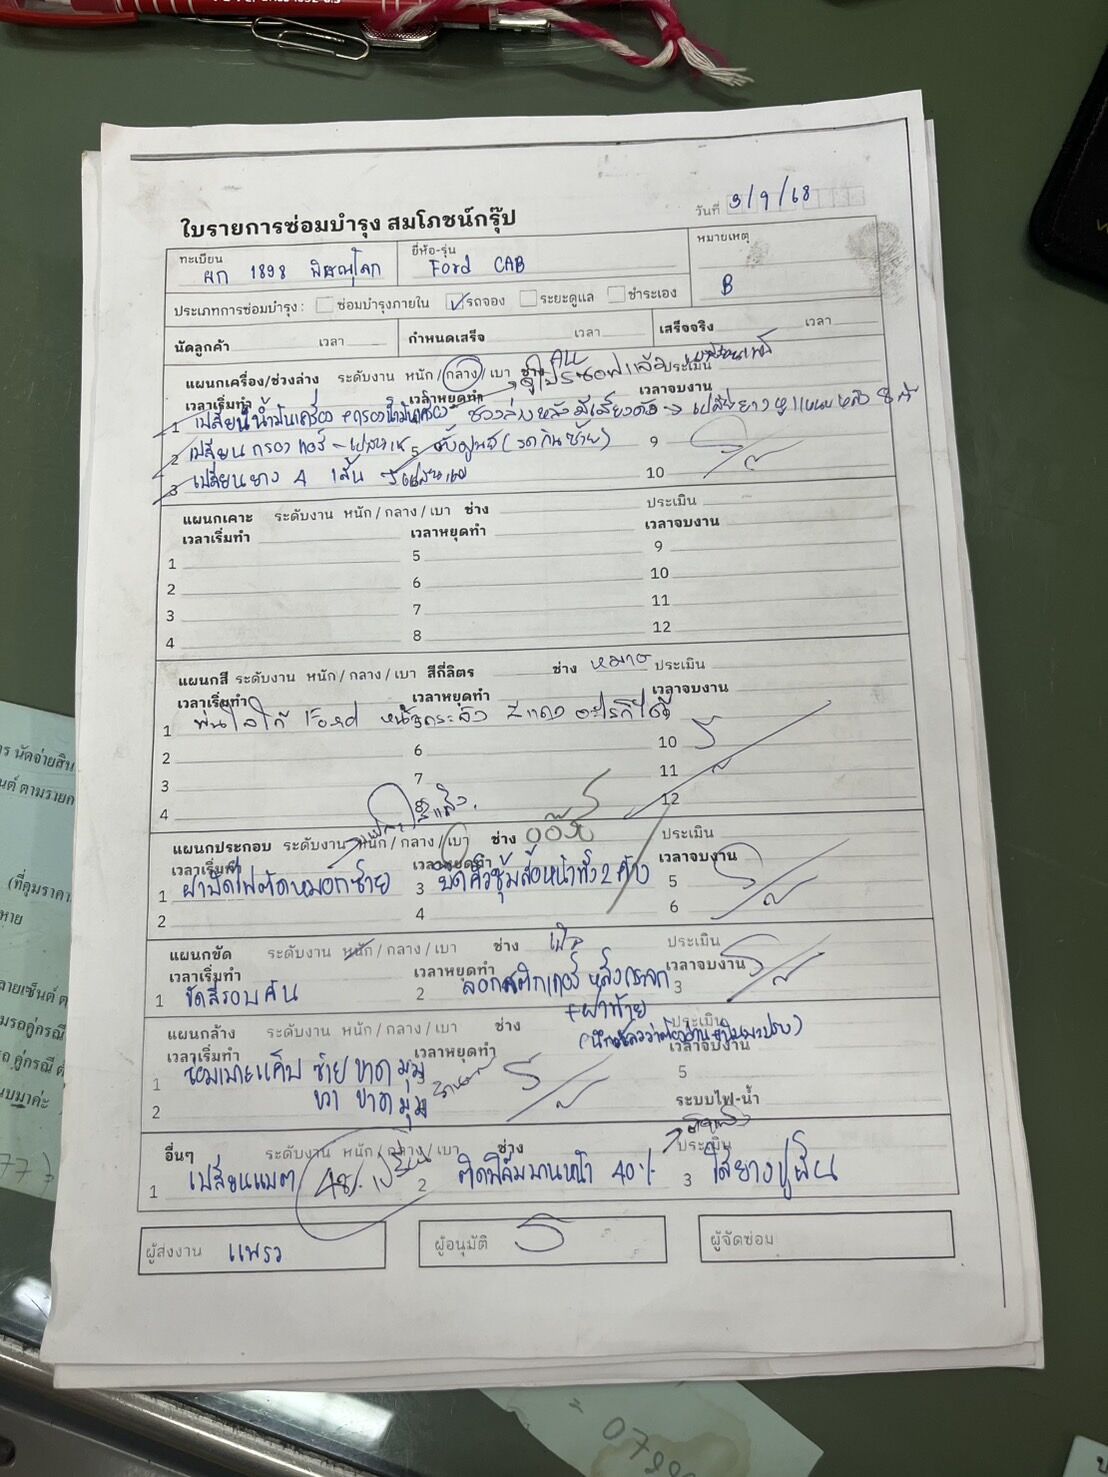 วันที่ 3/9/68
ใบรายการซ่อมบำรุง สมโภชน์กรุ๊ป
ทะเบียน ผก 1898 พิษณุโลก
ยี่ห้อ-รุ่น Ford CAB
หมายเหตุ B
ประเภทการซ่อมบำรุง : ซ่อมบำรุงภายใน รถจอง ระยะดูแล ชำระเอง
นัดลูกค้า เวลา กำหนดเสร็จ เวลา เสร็จจริง เวลา
แผนกเครื่อง/ช่วงล่าง ระดับงาน หนัก / กลาง / เบา ช่าง ประเมิน
เวลาเริ่มทำ เวลาหยุดทำ เวลาจบงาน
1 เปลี่ยนน้ำมันเครื่อง + กรองน้ำมันเครื่อง ช่วงล่างหลังมีเสียงดัง → เปลี่ยนยางหูแหนบหลัง 8 ตัว
2 เปลี่ยนกรองแอร์ 5 ตั้งศูนย์ (รถกินซ้าย) 9
3 เปลี่ยนยาง 4 เส้น 10
แผนกเคาะ ระดับงาน หนัก / กลาง / เบา ช่าง ประเมิน
เวลาเริ่มทำ เวลาหยุดทำ เวลาจบงาน
1 5 9
2 6 10
3 7 11
4 8 12
แผนกสี ระดับงาน หนัก / กลาง / เบา สีกี่ลิตร ช่าง ประเมิน
เวลาเริ่มทำ เวลาหยุดทำ เวลาจบงาน
1 พ่นโลโก้ Ford หน้ากระจัง สีแดง อะไรก็ได้
2 6 10
3 7 11
4 8 12
แผนกประกอบ ระดับงาน หนัก / กลาง / เบา ช่าง ประเมิน
เวลาเริ่มทำ เวลาหยุดทำ เวลาจบงาน
1 ฝาปิดไฟตัดหมอกซ้าย 3 ยึดคิ้วซุ้มล้อหน้าทั้ง 2 ข้าง 5
2 4 6
แผนกขัด ระดับงาน หนัก / กลาง / เบา ช่าง ประเมิน
เวลาเริ่มทำ เวลาหยุดทำ เวลาจบงาน
1 ขัดสีรอบคัน 2 ลอกสติกเกอร์ หลังกระจก 3
+ ฝาท้าย
แผนกล้าง ระดับงาน หนัก / กลาง / เบา ช่าง ประเมิน
เวลาเริ่มทำ เวลาหยุดทำ เวลาจบงาน
1 ซ่อมเบาะแค็บ ซ้าย ขาดมุม 5
2 ขวา ขาดมุม ระบบไฟ-น้ำ
อื่นๆ ระดับงาน หนัก / กลาง / เบา ช่าง ประเมิน
1 เปลี่ยนแบต 2 ติดฟิล์มบานหน้า 40% 3 ใส่ยางปูพื้น
ผู้ส่งงาน แพรว ผู้อนุมัติ ผู้จัดซ่อม